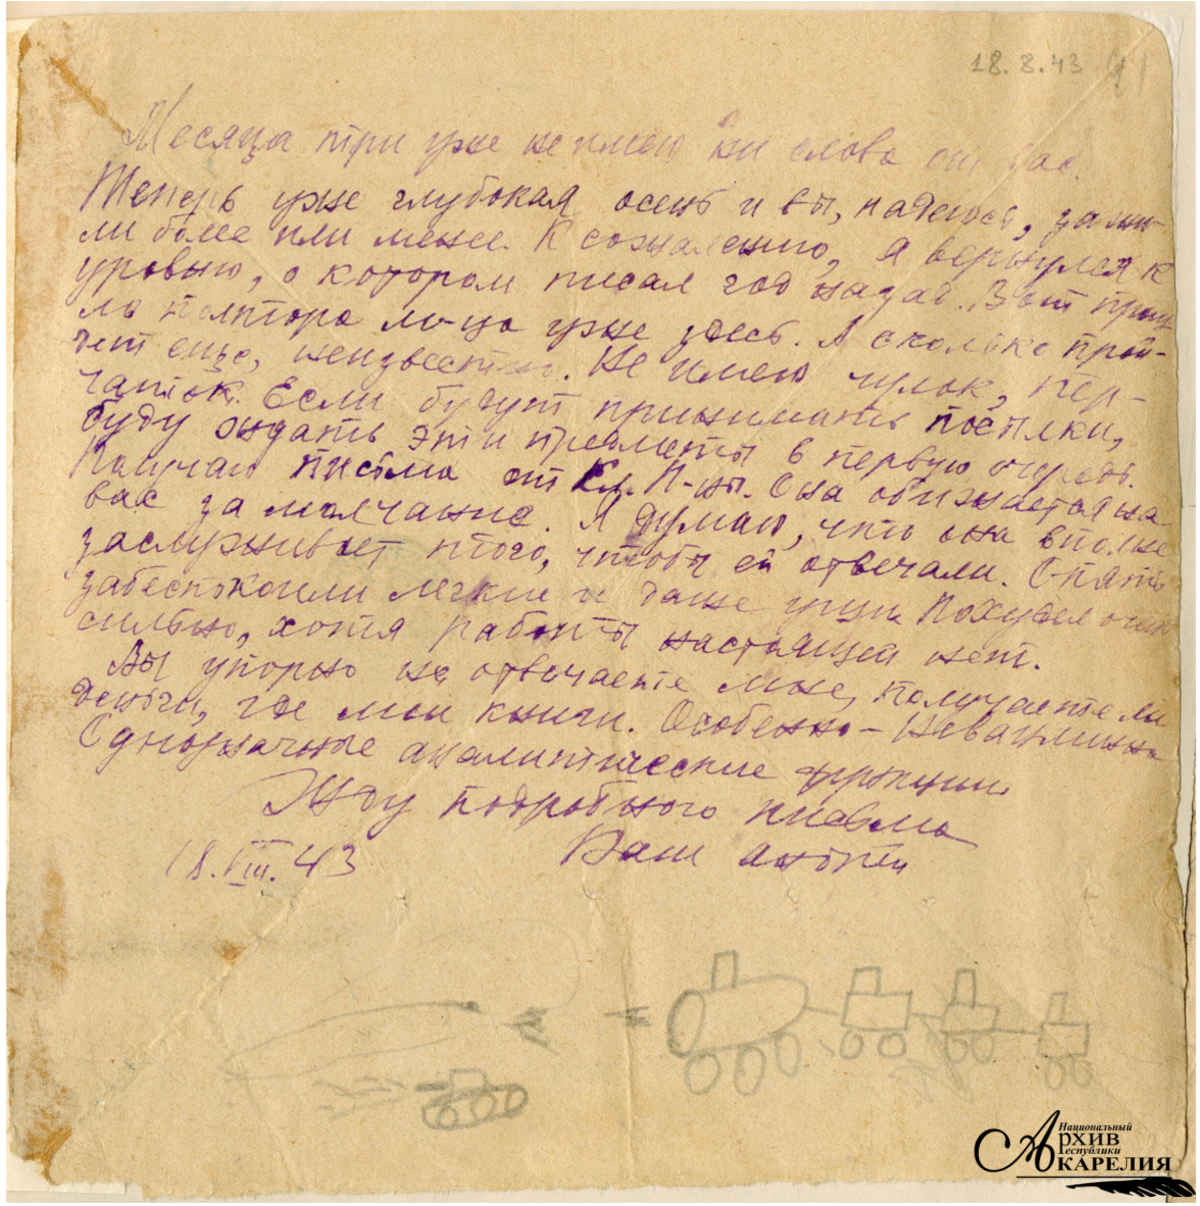 18.8.43
Месяца три уже не имею ни слова от вас.
Теперь уже глубокая осень и вы, надеюсь, зажи-
ли более или менее. К сожалению, я вернулся к
уровню, о котором писал год назад. Вот
полтора м-ца уже здесь. А сколько прой-
дет еще, неизвестно. Не имею чулок, пер-
чаток. Если будут принимать посылки,
буду ждать эти предметы в первую очередь.
Получаю письма от Кл. П-ны. Она обижается на
вас за молчание. Я думаю, что она вполне
заслуживает того, чтобы ей отвечали. Опять
забеспокоили легкие и даже уши. Похудел очень
сильно, хотя работы настоящей нет.
Вы упорно не отвечаете мне, получаете ли
деньги, где мои книги. Особенно – Неванлинна
Однозначные аналитические функции
Жду подробного письма
18.VIII.43 Ваш
Национальный
Архив
Республики
Карелия